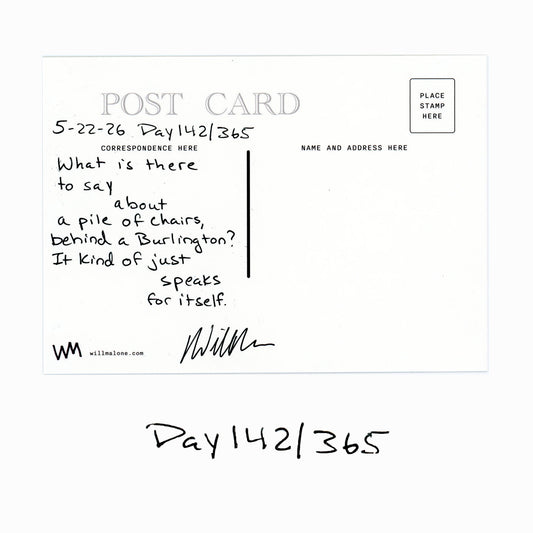 POST CARD
5-22-26 Day 142/365
CORRESPONDENCE HERE
What is there
to say
about
a pile of chairs,
behind a Burlington?
It kind of just
speaks
for itself.
WM willmalone.com
WillM
PLACE
STAMP
HERE
NAME AND ADDRESS HERE
Day 142/365